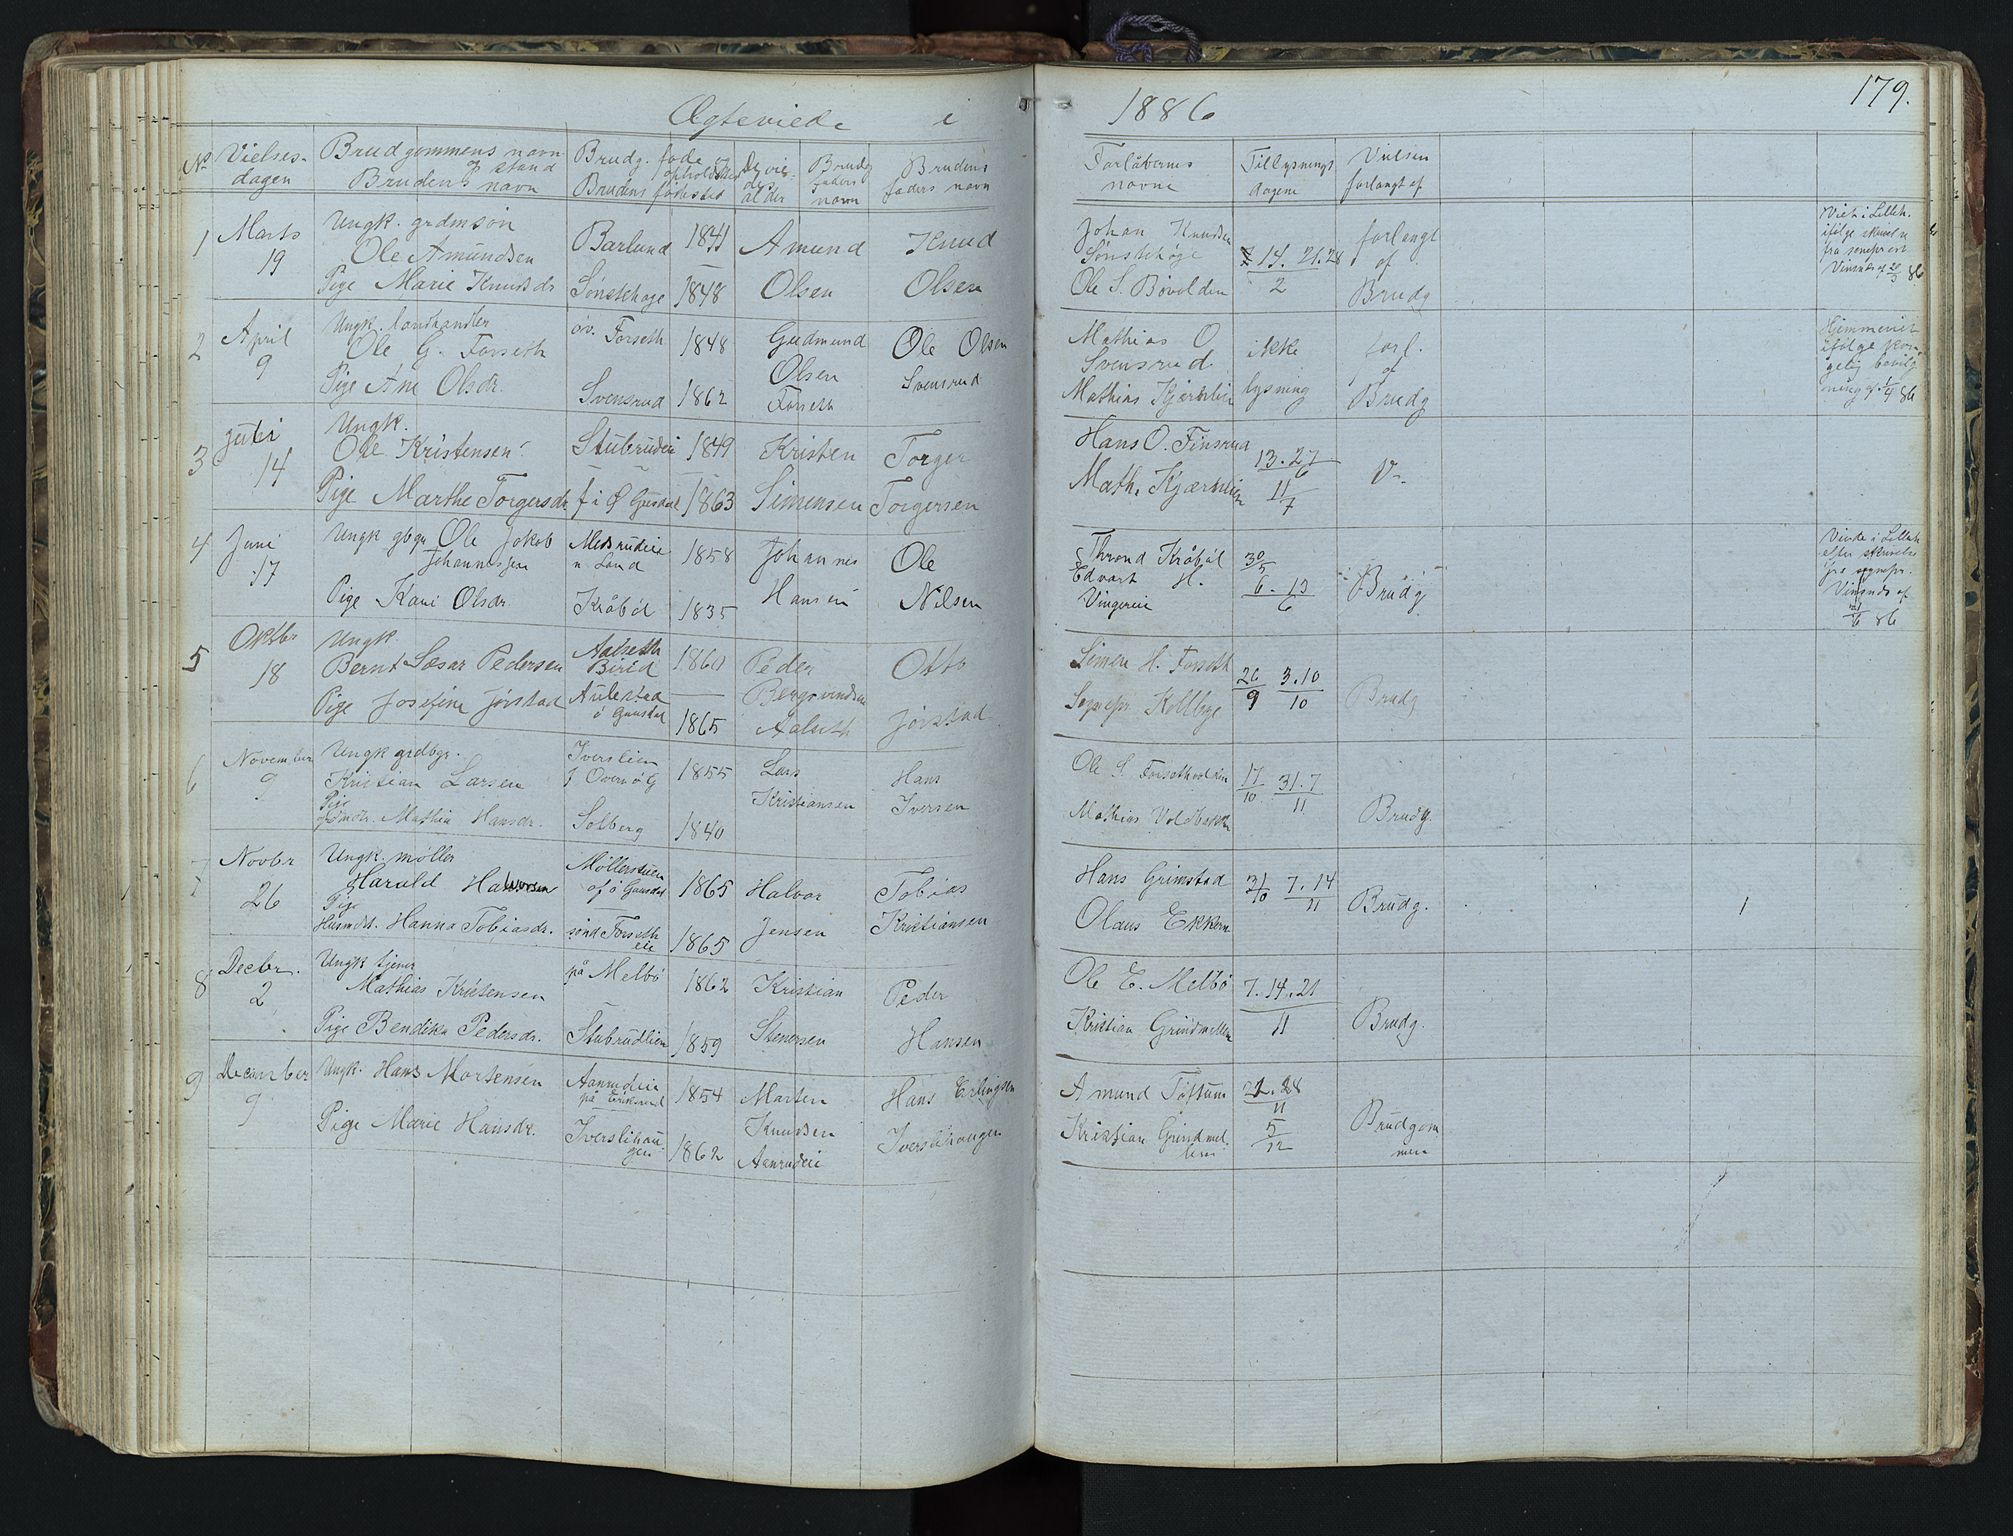 Ægteviede i 1886
179.
No Vielses-dagen
Brudgommens navn og stand
Brudens navn
Brudg. føde og opholdssted
Brudens fødested
De vis- des alder
Brudg faders navn
Brudens faders navn
Forlåbernes navne
Tillysnings dagene
Vielsen forlangt af
1 Marts 19
Ungk. grdmsøn
Ole Amundsen
Pige Marie Knudsdr
Barlund
Sønstehage
1841
1848
Amund Olsen
Knud Olsen
Johan Knudsen Sønstehage
Ole S. Bøvolden
14. 21. 28
2
forlangt af Brudg
Viet i Lilleh.
ifølge skrivelse
fra sognepræst
Vinsnes af 20/3 86
2 April 9
Ungk. landhandler
Ole G. Forseth
Pige Ane Olsdr.
øv. Forseth
Svensrud
1848
1862
Gudmund Olsen Forseth
Ole Olsen Svensrud
Mathias O Svensrud
Mathias Kjærnlie
ikke lysning
forl. af Brudg
Hjemmeviet
ifølge kon
gelig bevilg
ning af 1/4 86
3 Juli 14
Ungk.
Ole Kristensen
Pige Marthe Torgersdr
Stubrudeie
f i Ø Gusdal
1849
1863
Kristen Simensen
Torger Torgersen
Hans O. Finsrud
Math. Kjærnlien
13. 27
6
11
7
4 Juni 17
Ungk gbgr Ole Jakob
Johannessen
Pige Kari Olsdr.
Medsrudeie
n. Land
Kråbøl
1858
1835
Johannes Hansen
Ole Nilsen
Thrond Kråbøl
Edvart H.
Vingereie
30
5
6. 13
6
Brudg
Viede i Lilleh
efter skrivelse
fra sognepr.
Vinsnes af
6 86
5 Oktbr 18
Ungk.
Bernt Sæsar Pedersen
Pige Josefine Jørstad
Aalseth
Birid
Aulestad
ø Gausdal
1860
1865
Peder Bergsvendsen
Aalseth
Otto Jørstad
Simen H. Forseth
Sognepr Kolbye
26
9
3. 10
10
Brudg
6 November 9
Ungk grdbgr.
Kristian Larsen
Pige
Mathia Hansdr.
Iverslien
f Overnø G
Solberg
1855
1840
Lars Kristiansen
Hans Iversen
Ole S. Forsethvolden
Mathias Voldbakke
17
10
31. 7
11
Brudg.
7 Novbr 26
Ungk. møller
Harald Halvorsen
Pige
Husmdt. Hanna Tobiasdr.
Møllerstuen
af ø Gausdal
sønd Forseth
eie
1865
1865
Halvor Jensen
Tobias Kristiansen
Hans Grimstad
Olaus Ekkern
31
10
7. 14
11
Brudg.
1
8 Decbr. 2
Ungk tjener
Mathias Kristensen
Pige Bendika Pedersdr.
på Melbø
Stubrudlien
1862
1859
Kristian Stenersen
Peder Hansen
Ole E. Melbø
Kristian Grindmellen
7. 14. 21
11
Brudg.
9 December 9
Ungk. Hans Mortensen
Pige Marie Hansdr.
Aanrudeie
på Erikrud
Iverslihau
gen
1854
1862
Morten Knudsen
Aanrudeie
Hans Erlingsen
Iverslihaugen
Amund Toftum
Kristian Grindmel
lien
21. 28
11
5
12
Brudgom
men